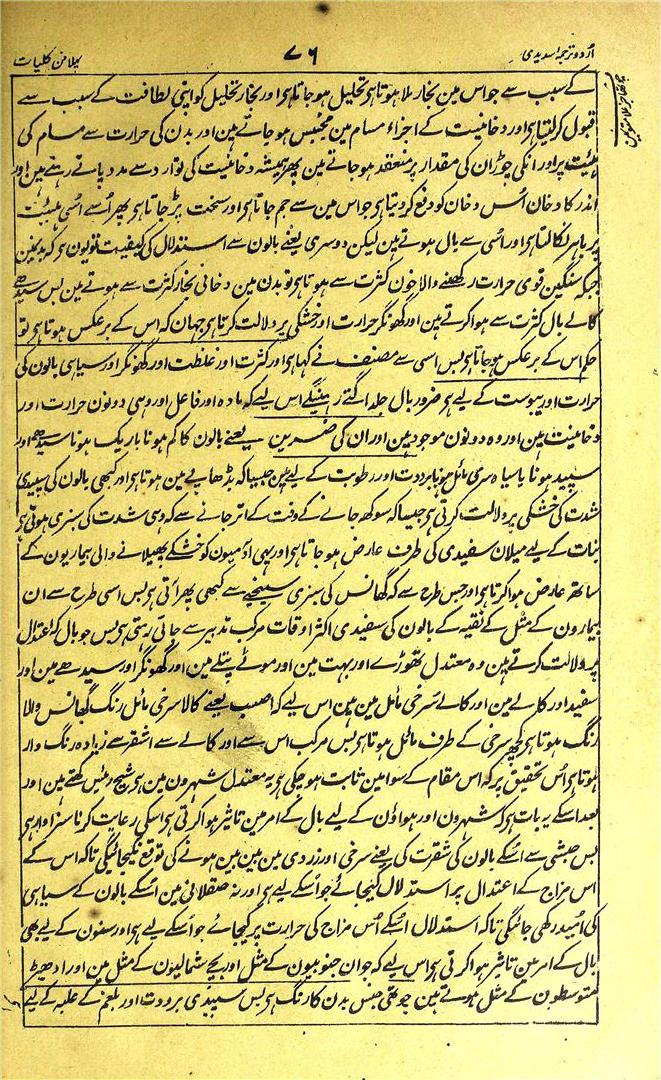 اُردو ترجمہ سدیدی ۷۶ پہلا فن کلیات
کے سبب سے جو اس مین بخار ملا ہوتا ہی تحلیل ہو جاتا ہی اور بخار تحلیل کو اپنی لطافت کے سبب سے
قبول کر لیتا ہی اور دخانیت کے اجزاء مسام مین محتبس ہو جاتے ہین اور بدن کی حرارت سے مسام کی
ہیئت پر اور انکی چوڑان کی مقدار پر منعقد ہو جاتے ہین پھر ہمیشہ دخانیت کی توارد سے مدد پاتے رہتے ہین اور
اندر کا دخان اُس دخان کو دفع کر دیتا ہی جو اس مین سے جم جاتا ہی اور سخت پڑ جاتا ہی پھر اُسے اُسی ہیئت
پر باہر نکالتا ہی اور اُسی سے بال ہوتے ہین لیکن دوسری یعنے بالون سے استدلال کی کیفیت تو یون ہی کہ بدن مین
جبکہ سنگین قوی حرارت رکھنے والا خون کثرت سے ہوتا ہی تو بدن مین دخانی بخار کثرت سے ہوتے ہین بس سیدھے
کالے بال کثرت سے ہوا کرتے ہین اور گھونگر حرارت اور خشکی پر دلالت کرتا ہی جہان کہ اس کے برعکس ہوتا ہی تو
حکم اس کے برعکس ہو جاتا ہی بس اسی سے مصنف نے کہا ہی اور کثرت اور غلظت اور گھونگر اور سیاہی بالون کی
حرارت اور یبوست کے لیے ہی ضرور بال جلد اگتے رہینگے اس لیے کہ مادہ اور فاعل اور وہی دونون حرارت اور
دخانیت ہین اور وہ دونون موجود ہین اور ان کی ضدین یعنے بالون کا کم ہونا باریک ہونا سیدھے اور
سپید ہونا یا سیاہ سری مائل ہونا برودت اور رطوبت کے لیے ہین جیسا کہ بڈھاپے مین ہوتا ہی اور کبھی بالون کی سپیدی
شدت کی خشکی پر دلالت کرتی ہی جیسا کہ سوکھ جانے کے وقت کے اتر جانے سے کہ وہی شدت کی سبزی ہوتی ہی
نبات کے لیے میلان سفیدی کی طرف عارض ہو جاتا ہی اور یہی آدمیون کو خشکے پھیلانے والی بیماریون کے
ساتھ عارض ہوا کرتا ہی اور جس طرح سے کہ گھانس کی سبزی سینچے سے کبھی پھر آتی ہی بس اسی طرح سے ان
بیمارون کے مثل کے نقیہ کے بالون کی سفیدی اکثر اوقات مرکب تدبیر سے جاتی رہتی ہی بس جو بال کہ اعتدال
پر دلالت کرتے ہین وہ معتدل تھوڑے اور بہت مین اور موٹے پتلے مین اور گھونگر اور سیدھے مین اور
سفید اور کالے مین اور کالے سرخی مائل مین ہین اس لیے کہ اصہب یعنے کالا سرخی مائل رنگ گھانس والا
رنگ ہوتا ہی کچھ سرخی کے طرف مائل ہوتا ہی بس مرکب اس سے اور کالے سے اشقر سے زیادہ رنگ وار
ہوتا ہی اُس تحقیق پر کہ اس مقام کے سوا مین ثابت ہو چکی ہی یہ معتدل شہرون مین ہی شیخ رئیس لکھتے ہین اور
بعد اسکے یہ بات ہی کہ شہرون اور ہواؤن کے لیے بال کے امر مین تاثیر ہوا کرتی ہی اسکی رعایت کرنا سزاوار ہی
بس حبشی سے اُسکے بالون کی شقرت کی یعنے سرخی اور زردی مین بین بین ہونے کی توقع نکیجائیگی تاکہ اس کے
اس مزاج کے اعتدال پر استدلال کیجائے جو اُسکے لیے ہی اور نہ صقلابی مین اُسکے بالون کے سیاہی
کی اُمید رکھی جائیگی تاکہ استدلال اُسکے اُس مزاج کی حرارت پر کیجائے جو اُسکے لیے ہی اور سنون کے لیے بھی
بال کے امر مین تاثیر ہوا کرتی ہی اس لیے کہ جوان جنوبیون کے مثل اور بچے شمالیون کے مثل ہین اور ادھیڑ
متوسطون کے مثل ہوتے ہین چوتھی جنس بدن کا رنگ ہی بس سپیدی برودت اور بلغم کے غلبہ کے لیے